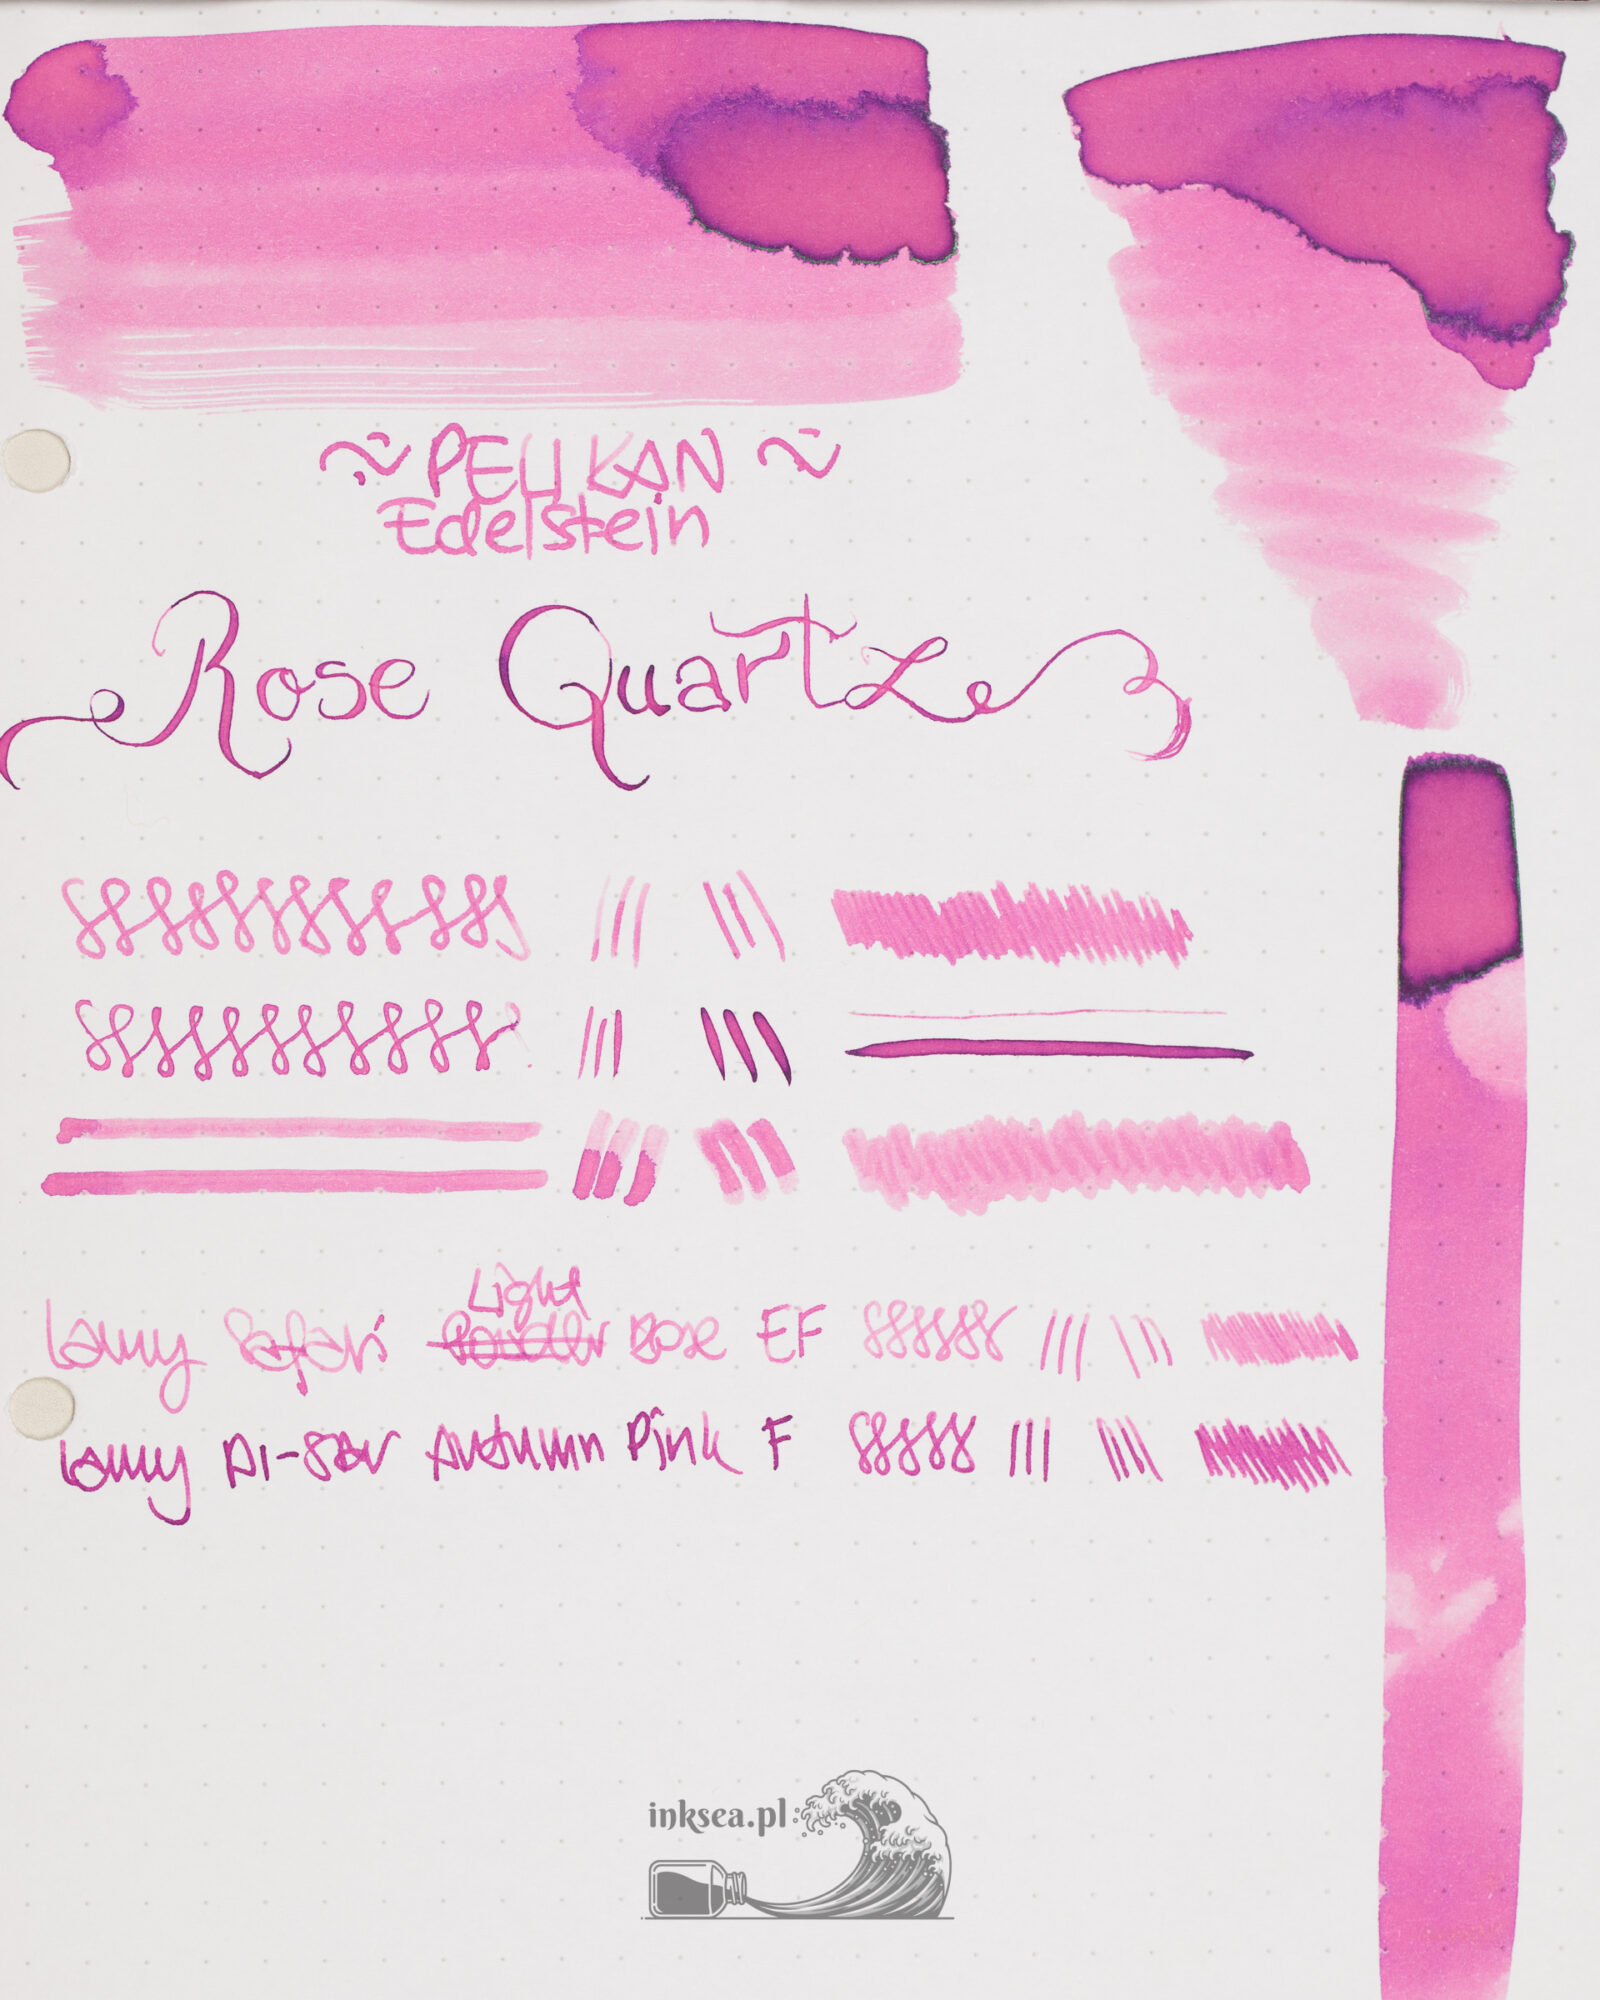 ~ PELIKAN ~
Edelstein
Rose Quartz
Light
Lamy Safari Powder Rose EF
Lamy Al-Star Autumn Pink F
inksea.pl